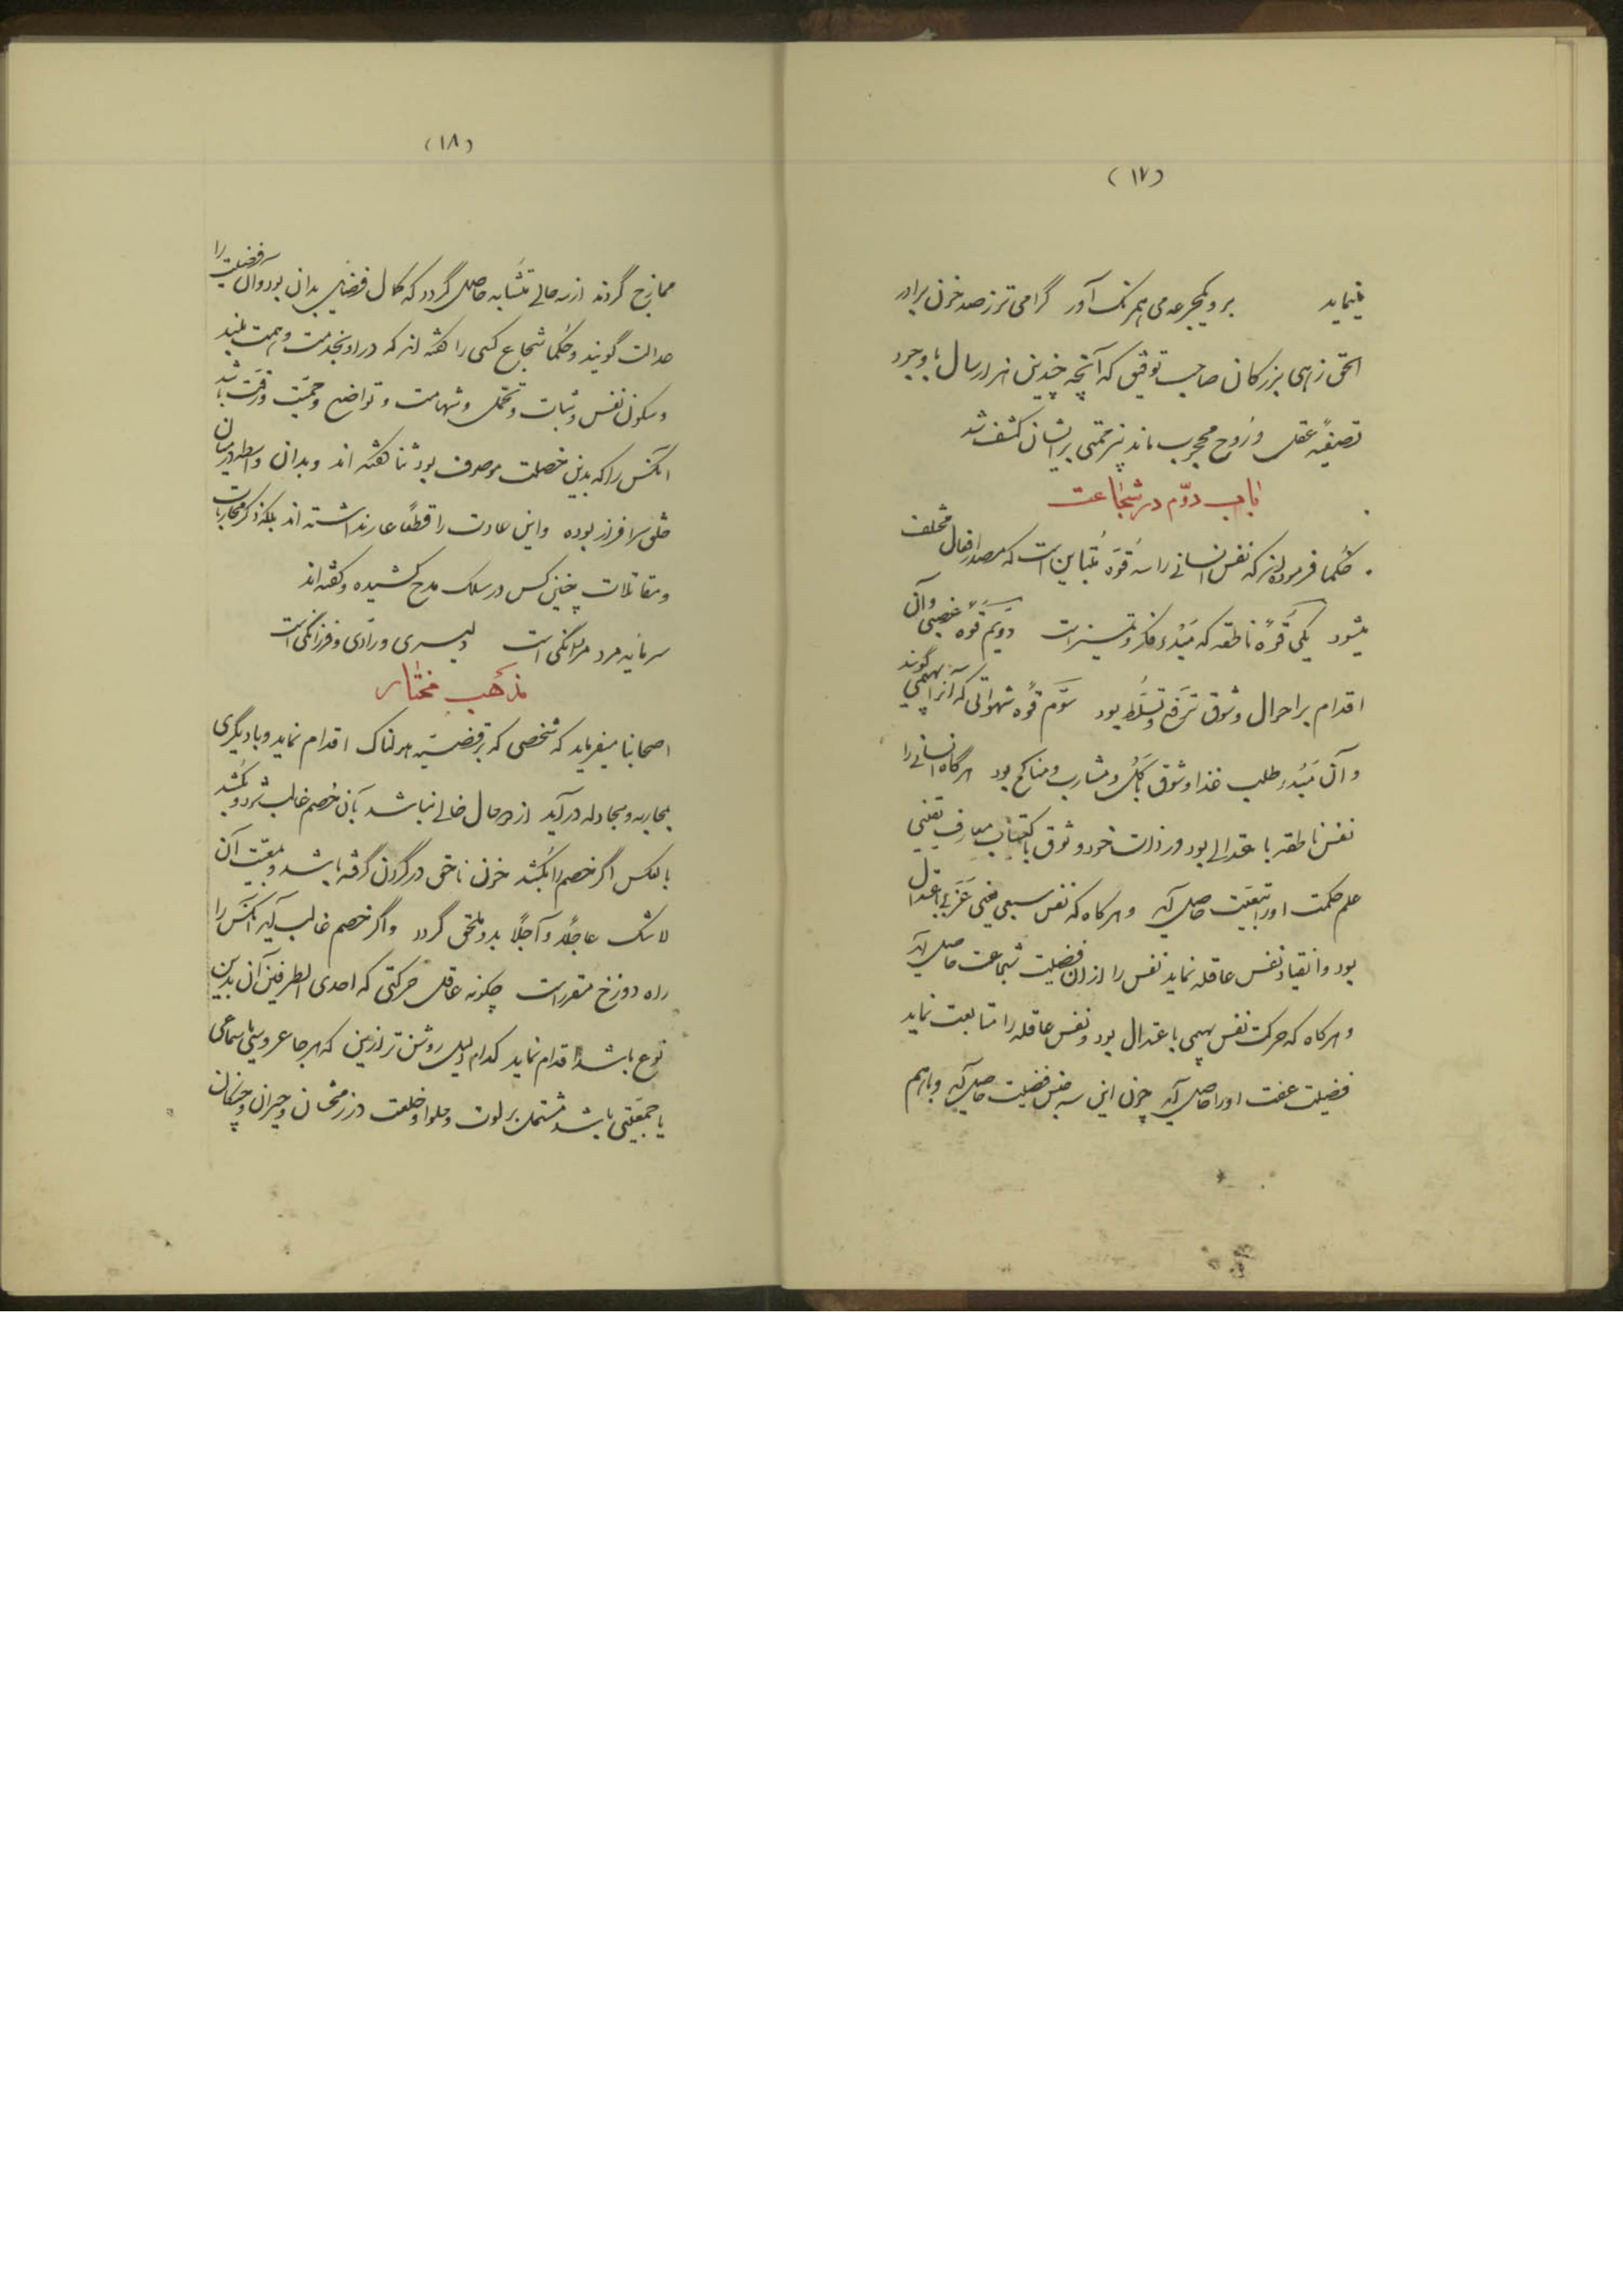 (۱۷)
مینماید برو یکجرعه می همرنک آور گرامی تر ز صد خون برادر
الحق زهی بزرکان صاحب توفیق که آنچه چندین هزار سال با وجود
تصفیهٔ عقل و روح محجوب ماند برایشان کشف شد
باب دوّم در شجاعت
حکما فرموده‌اند که نفس انسانی را سه قوّه متباین است که مصدر افعال مختلف
میشود یکی قوّهٔ ناطقه که مبدء فکر و تمییز است دویّم قوّه غضبی و آن
اقدام بر احوال و شوق ترفع و تسلّط بود سیّم قوّه شهوانی که آنرا بهیمی گویند
و آن مبدء طلب غذا و شوق بمآکل و مشارب و مناکح بود هرگاه انسانی را
نفس ناطقه باعتدالی بود در ذات خود و شوق باکتساب معارف یقینی
علم حکمت او را بتبعیّت حاصل آید و هرکاه که نفس سبعی یعنی غضبی باعتدال
بود و انقیاد نفس عاقله نماید نفس را از ان فضیلت شجاعت حاصل آید
و هرکاه که حرکت نفس بهیمی باعتدال بود و نفس عاقله را متابعت نماید
فضیلت عفت او را حاصل آید چون این سه جنس فضیلت حاصل آید و باهم
(۱۸)
ممازج گردند از سه حالی متشابه حاصل گردد که کمال فضایل بدان بود و آن فضیلت را
عدالت گویند و حکما شجاع کسی را گفته‌اند که در او نجدت و همت بلند
و سکون نفس و ثبات و تحمّل و شهامت و تواضع و حمیّت و رقّت باشد
آنکس را که بدین خصلت موصوف بود ثنا گفته اند و بدان واسطه در میان
خلق سرافراز بوده و این عادت را قطعاً عار نداشته اند بلکه ذکر محاربات
و مقاتلات چنین کس در سلک مدح کشیده و گفته‌اند
سرمایه مرد مردانگی است دلیری و رادی و فرزانگی است
مذهب مختار
اصحابنا میفرماید که شخصی که بر قضیّه هولناک اقدام نماید و با دیگری
بمحاربه و مجادله در آید از دو حال خالی نباشد یا آن خصم غالب شود و بکشد
یا بالعکس اگر خصم را بکشد خون ناحق در گردن گرفته باشد و تبعیّت آن
لاشک عاجلاً و آجلاً بدو ملحق گردد و اگر خصم غالب آید آنکس را
راه دوزخ مقرر است چگونه عاقل حرکتی که احدی الطرفین آن بدین
نوع باشد اقدام نماید کدام دلیل روشن تر از این که هر جا عروسی یا سماعی
یا جمعیّتی باشد مشتمل بر لوت و حلوا و خلعت و زر مخنثان و حیزان و چنگیان